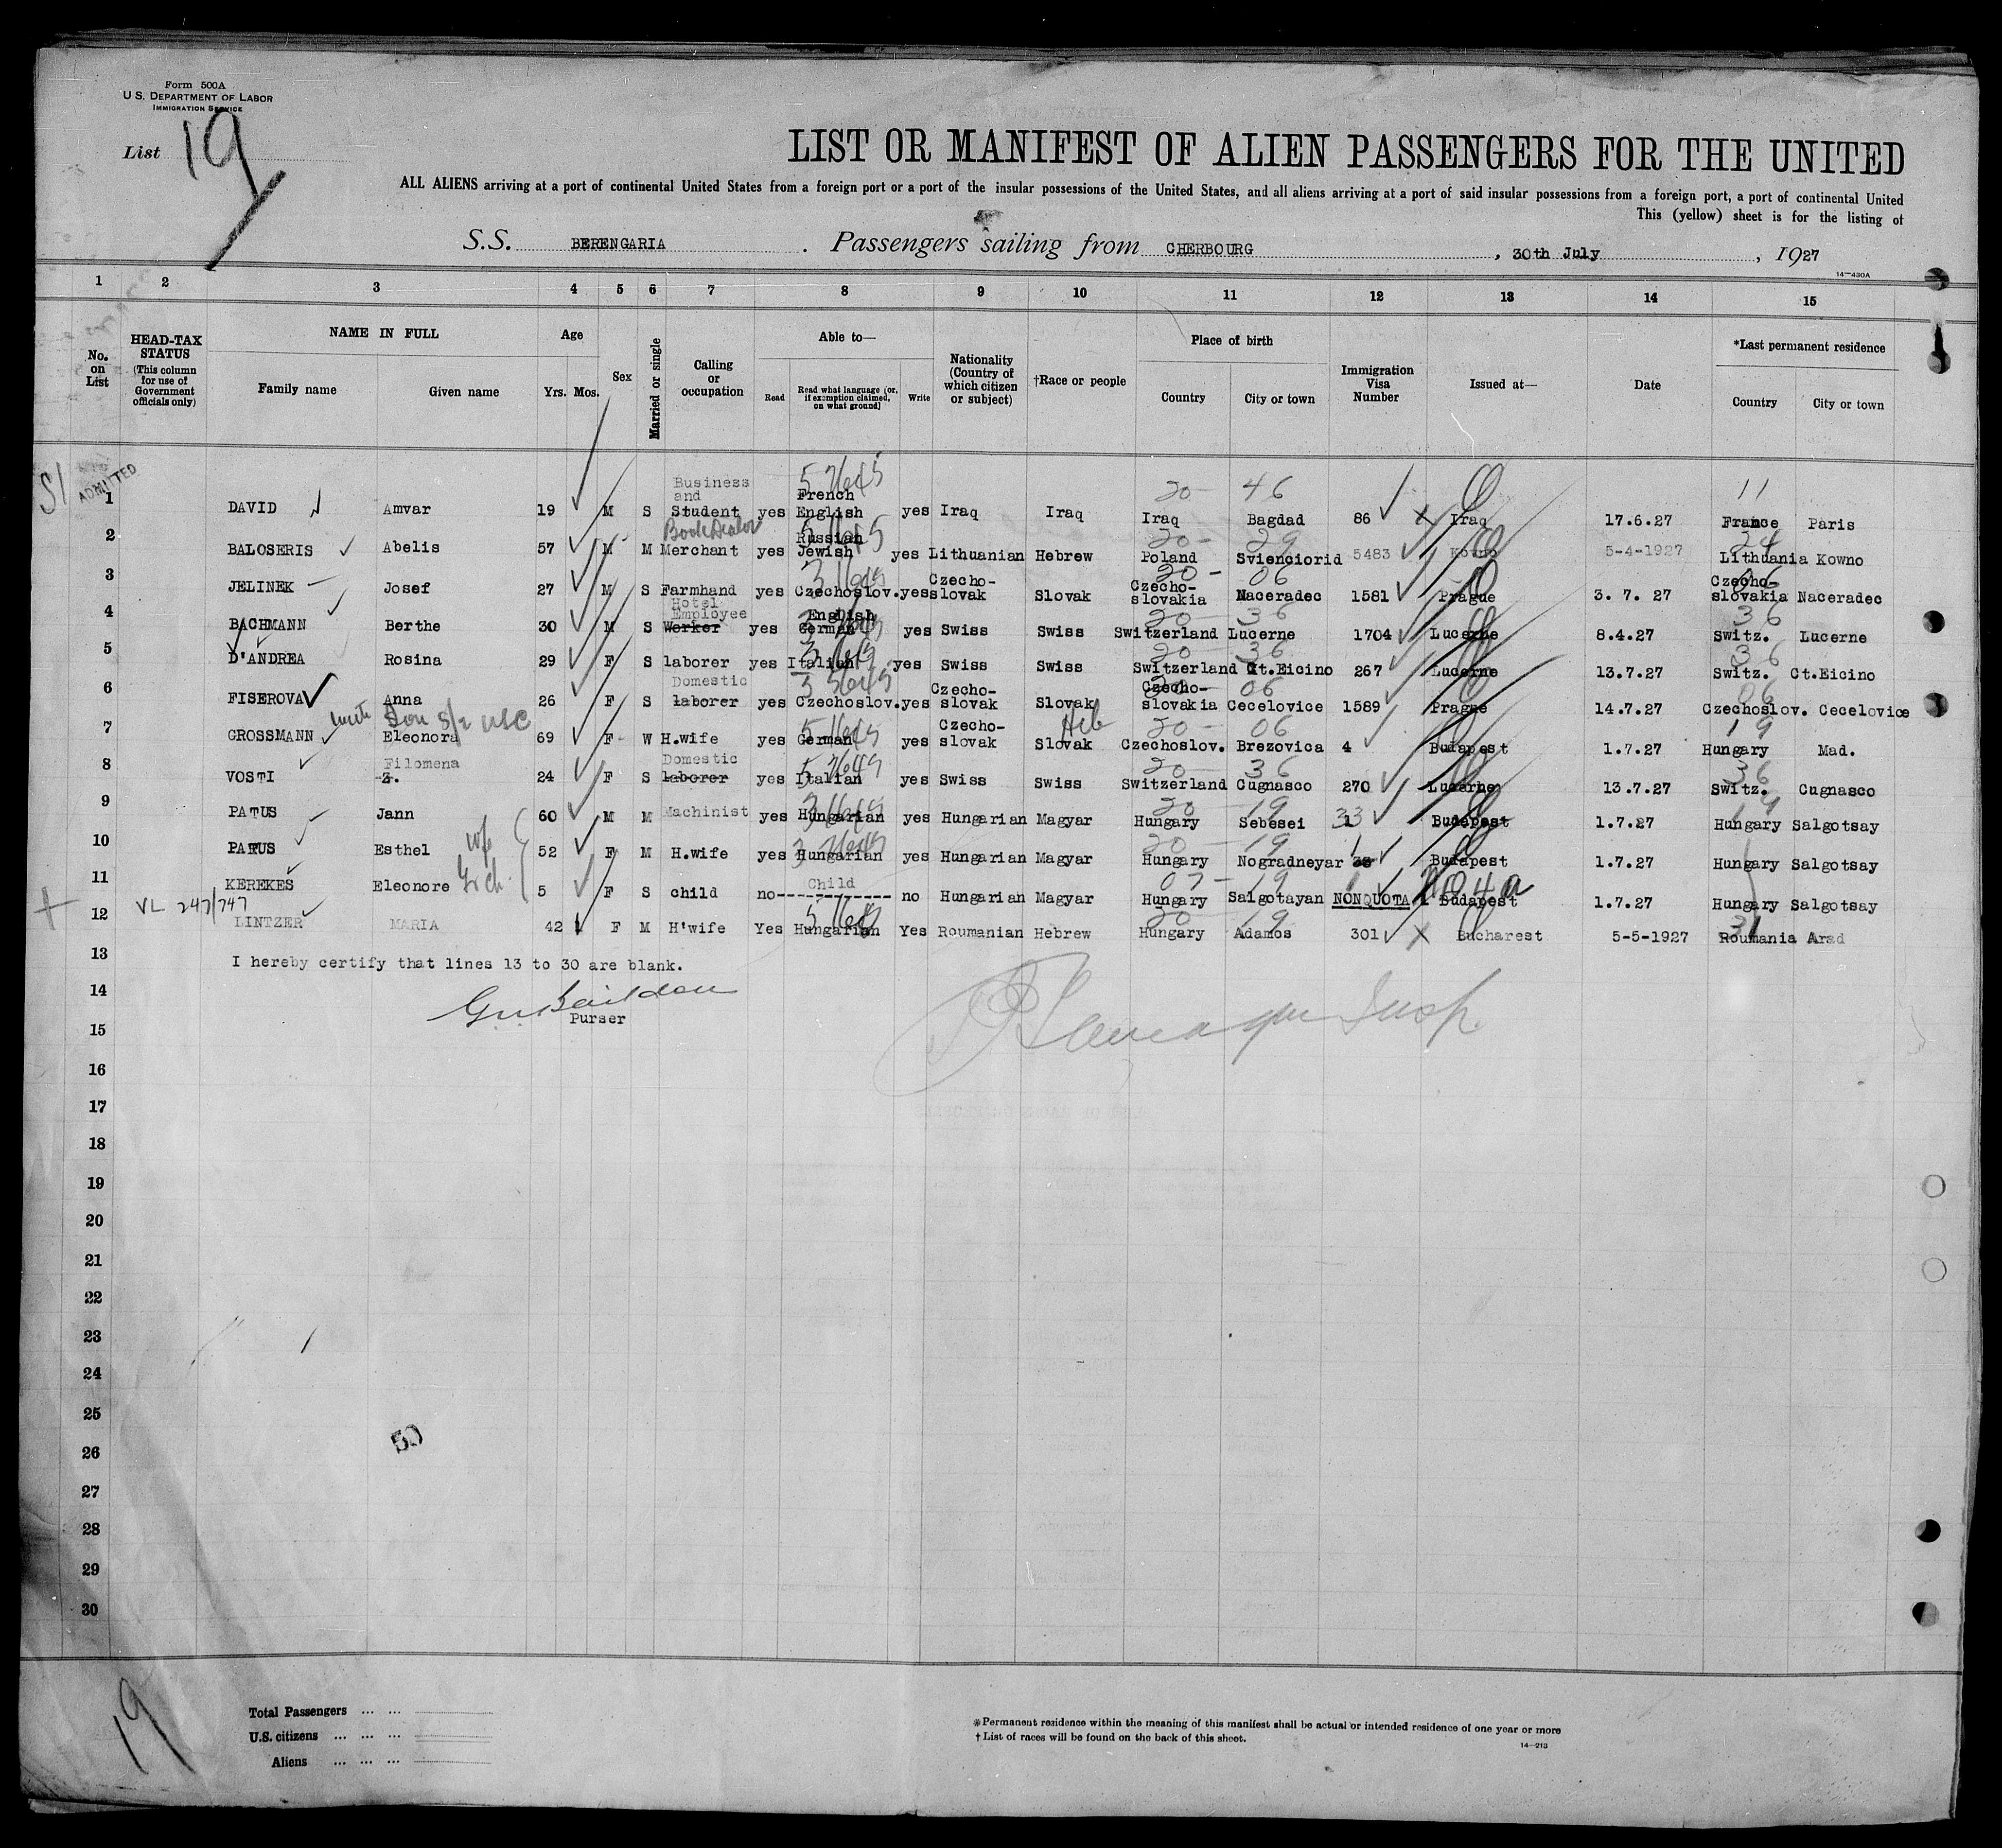 Form 500A
U.S. DEPARTMENT OF LABOR
IMMIGRATION SERVICE
List 19
LIST OR MANIFEST OF ALIEN PASSENGERS FOR THE UNITED
ALL ALIENS arriving at a port of continental United States from a foreign port or a port of the insular possessions of the United States, and all aliens arriving at a port of said insular possessions from a foreign port, a port of continental United
This (yellow) sheet is for the listing of
S.S. BERENGARIA . Passengers sailing from CHERBOURG , 30th July , 1927
14-430A
1 2 3 4 5 6 7 8 9 10 11 12 13 14 15
No. on List
HEAD-TAX STATUS (This column for use of Government officials only)
NAME IN FULL Family name Given name
Age Yrs. Mos.
Sex
Married or single
Calling or occupation
Able to— Read Read what language (or, if exemption claimed, on what ground) Write
Nationality (Country of which citizen or subject)
†Race or people
Place of birth Country City or town
Immigration Visa Number
Issued at—
Date
*Last permanent residence Country City or town
S/ ADMITTED
5 20 46 11
1 DAVID Amvar 19 M S Business and Student yes French English yes Iraq Iraq Iraq Bagdad 86 Iraq 17.6.27 France Paris
Book Dealer 20 29 24
2 BALOSERIS Abelis 57 M M Merchant yes Russian Jewish yes Lithuanian Hebrew Poland Svienciorid 5483 Kowno 5-4-1927 Lithuania Kowno
20 06
3 JELINEK Josef 27 M S Farmhand yes Czechoslov. yes Czecho-slovak Slovak Czecho-slovakia Naceradec 1581 Prague 3. 7. 27 Czecho-slovakia Naceradec
20 36 36
4 BACHMANN Berthe 30 M S Hotel Employee Worker yes English German yes Swiss Swiss Switzerland Lucerne 1704 Lucerne 8.4.27 Switz. Lucerne
20 36 36
5 D'ANDREA Rosina 29 F S laborer yes Italian yes Swiss Swiss Switzerland Ct.Eicino 267 Lucerne 13.7.27 Switz. Ct.Eicino
20 06 06
6 FISEROVA Anna 26 F S Domestic laborer yes Czechoslov. yes Czecho-slovak Slovak Czecho-slovakia Cecelovice 1589 Prague 14.7.27 Czechoslov. Cecelovice
Son S/2 USC Heb 20 06 19
7 GROSSMANN Eleonora 69 F W H.wife yes German yes Czecho-slovak Slovak Czechoslov. Brezovica 4 Budapest 1.7.27 Hungary Mad.
20 36 36
8 VOSTI Filomena Z. 24 F S Domestic laborer yes Italian yes Swiss Swiss Switzerland Cugnasco 270 Lucerne 13.7.27 Switz. Cugnasco
20 19 19
9 PATUS Jann 60 M M Machinist yes Hungarian yes Hungarian Magyar Hungary Sebesei 33 Budapest 1.7.27 Hungary Salgotsay
20 19
10 PATUS Esthel wife 52 F M H.wife yes Hungarian yes Hungarian Magyar Hungary Nogradneyar Budapest 1.7.27 Hungary Salgotsay
07 19
11 KEREKES Eleonore Gr ch. 5 F S child no Child no Hungarian Magyar Hungary Salgotayan NONQUOTA Budapest 1.7.27 Hungary Salgotsay
VL 247/747 20 19 31
12 LINTZER MARIA 42 F M H'wife Yes Hungarian Yes Roumanian Hebrew Hungary Adamos 301 Bucharest 5-5-1927 Roumania Arad
13 I hereby certify that lines 13 to 30 are blank.
14
Purser
15
16
17
18
19
20
21
22
23
24
25
50
26
27
28
29
30
19
Total Passengers ... ...
U.S. citizens ... ... ...
Aliens ... ... ...
*Permanent residence within the meaning of this manifest shall be actual or intended residence of one year or more
†List of races will be found on the back of this sheet.
14-213